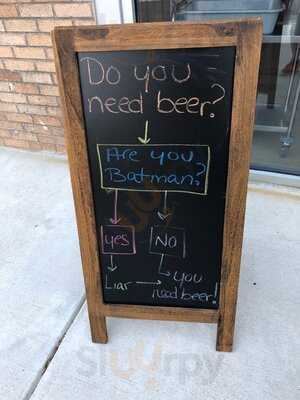 Do you
need beer?
Are you
Batman?
yes
NO
Liar
you
need beer!
Sluurpy